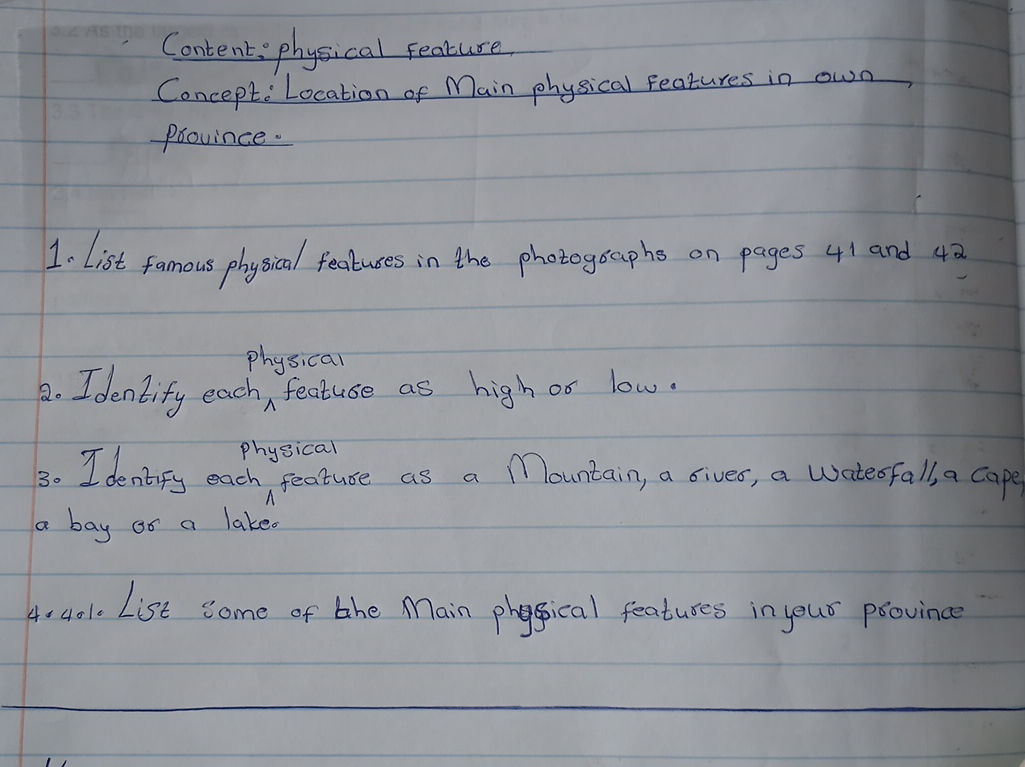 Content: physical feature
Concept: Location of Main physical features in own
province.
1. List famous physical features in the photographs on pages 41 and 42
physical
2. Identify each ^ feature as high or low.
physical
3. Identify each ^ feature as a Mountain, a river, a Waterfall, a cape,
a bay or a lake.
4. 4.1. List some of the Main physical features in your province